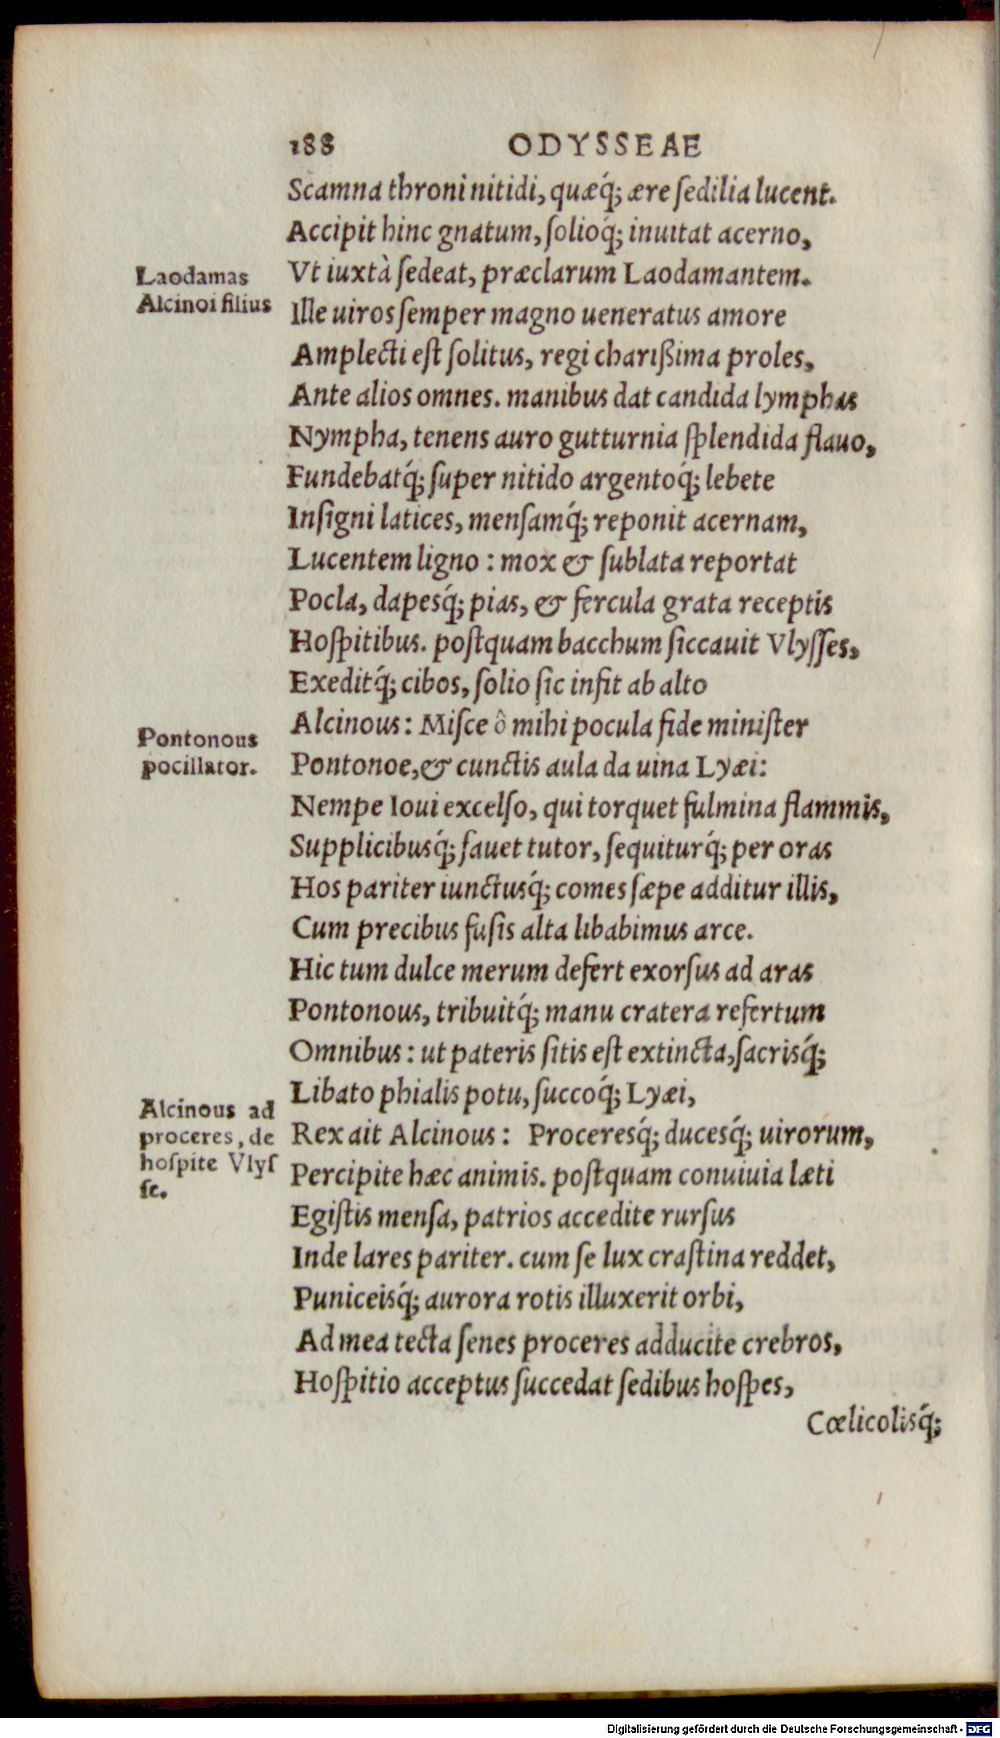 188 ODYSSEAE
Scamna throni nitidi, quæq́; ære ſedilia lucent.
Accipit hinc gnatum, ſolioq́; inuitat acerno,
Laodamas
Alcinoi filius
Vt iuxtà ſedeat, præclarum Laodamantem.
Ille uiros ſemper magno ueneratus amore
Amplecti eſt ſolitus, regi charißima proles,
Ante alios omnes. manibus dat candida lymphas
Nympha, tenens auro gutturnia ſplendida flauo,
Fundebatq́; ſuper nitido argentoq́; lebete
Inſigni latices, menſamq́; reponit acernam,
Lucentem ligno: mox & ſublata reportat
Pocla, dapesq́; pias, & fercula grata receptis
Hoſpitibus. poſtquam bacchum ſiccauit Vlyſſes,
Exeditq́; cibos, ſolio ſic infit ab alto
Pontonous
pocillator.
Alcinous: Miſce ô mihi pocula fide miniſter
Pontonoe, & cunctis aula da uina Lyæi:
Nempe Ioui excelſo, qui torquet fulmina flammis,
Supplicibusq́; fauet tutor, ſequiturq́; per oras
Hos pariter iunctusq́; comes ſæpe additur illis,
Cum precibus fuſis alta libabimus arce.
Hic tum dulce merum defert exorſus ad aras
Pontonous, tribuitq́; manu cratera refertum
Omnibus: ut pateris ſitis eſt extincta, ſacrisq́;
Libato phialis potu, ſuccoq́; Lyæi,
Alcinous ad
proceres, de
hoſpite Vlyſ
ſe.
Rex ait Alcinous: Proceresq́; ducesq́; uirorum,
Percipite hæc animis. poſtquam conuiuia læti
Egiſtis menſa, patrios accedite rurſus
Inde lares pariter. cum ſe lux craſtina reddet,
Puniceisq́; aurora rotis illuxerit orbi,
Ad mea tecta ſenes proceres adducite crebros,
Hoſpitio acceptus ſuccedat ſedibus hoſpes,
Cœlicolisq́;
Digitalisierung gefördert durch die Deutsche Forschungsgemeinschaft - DFG